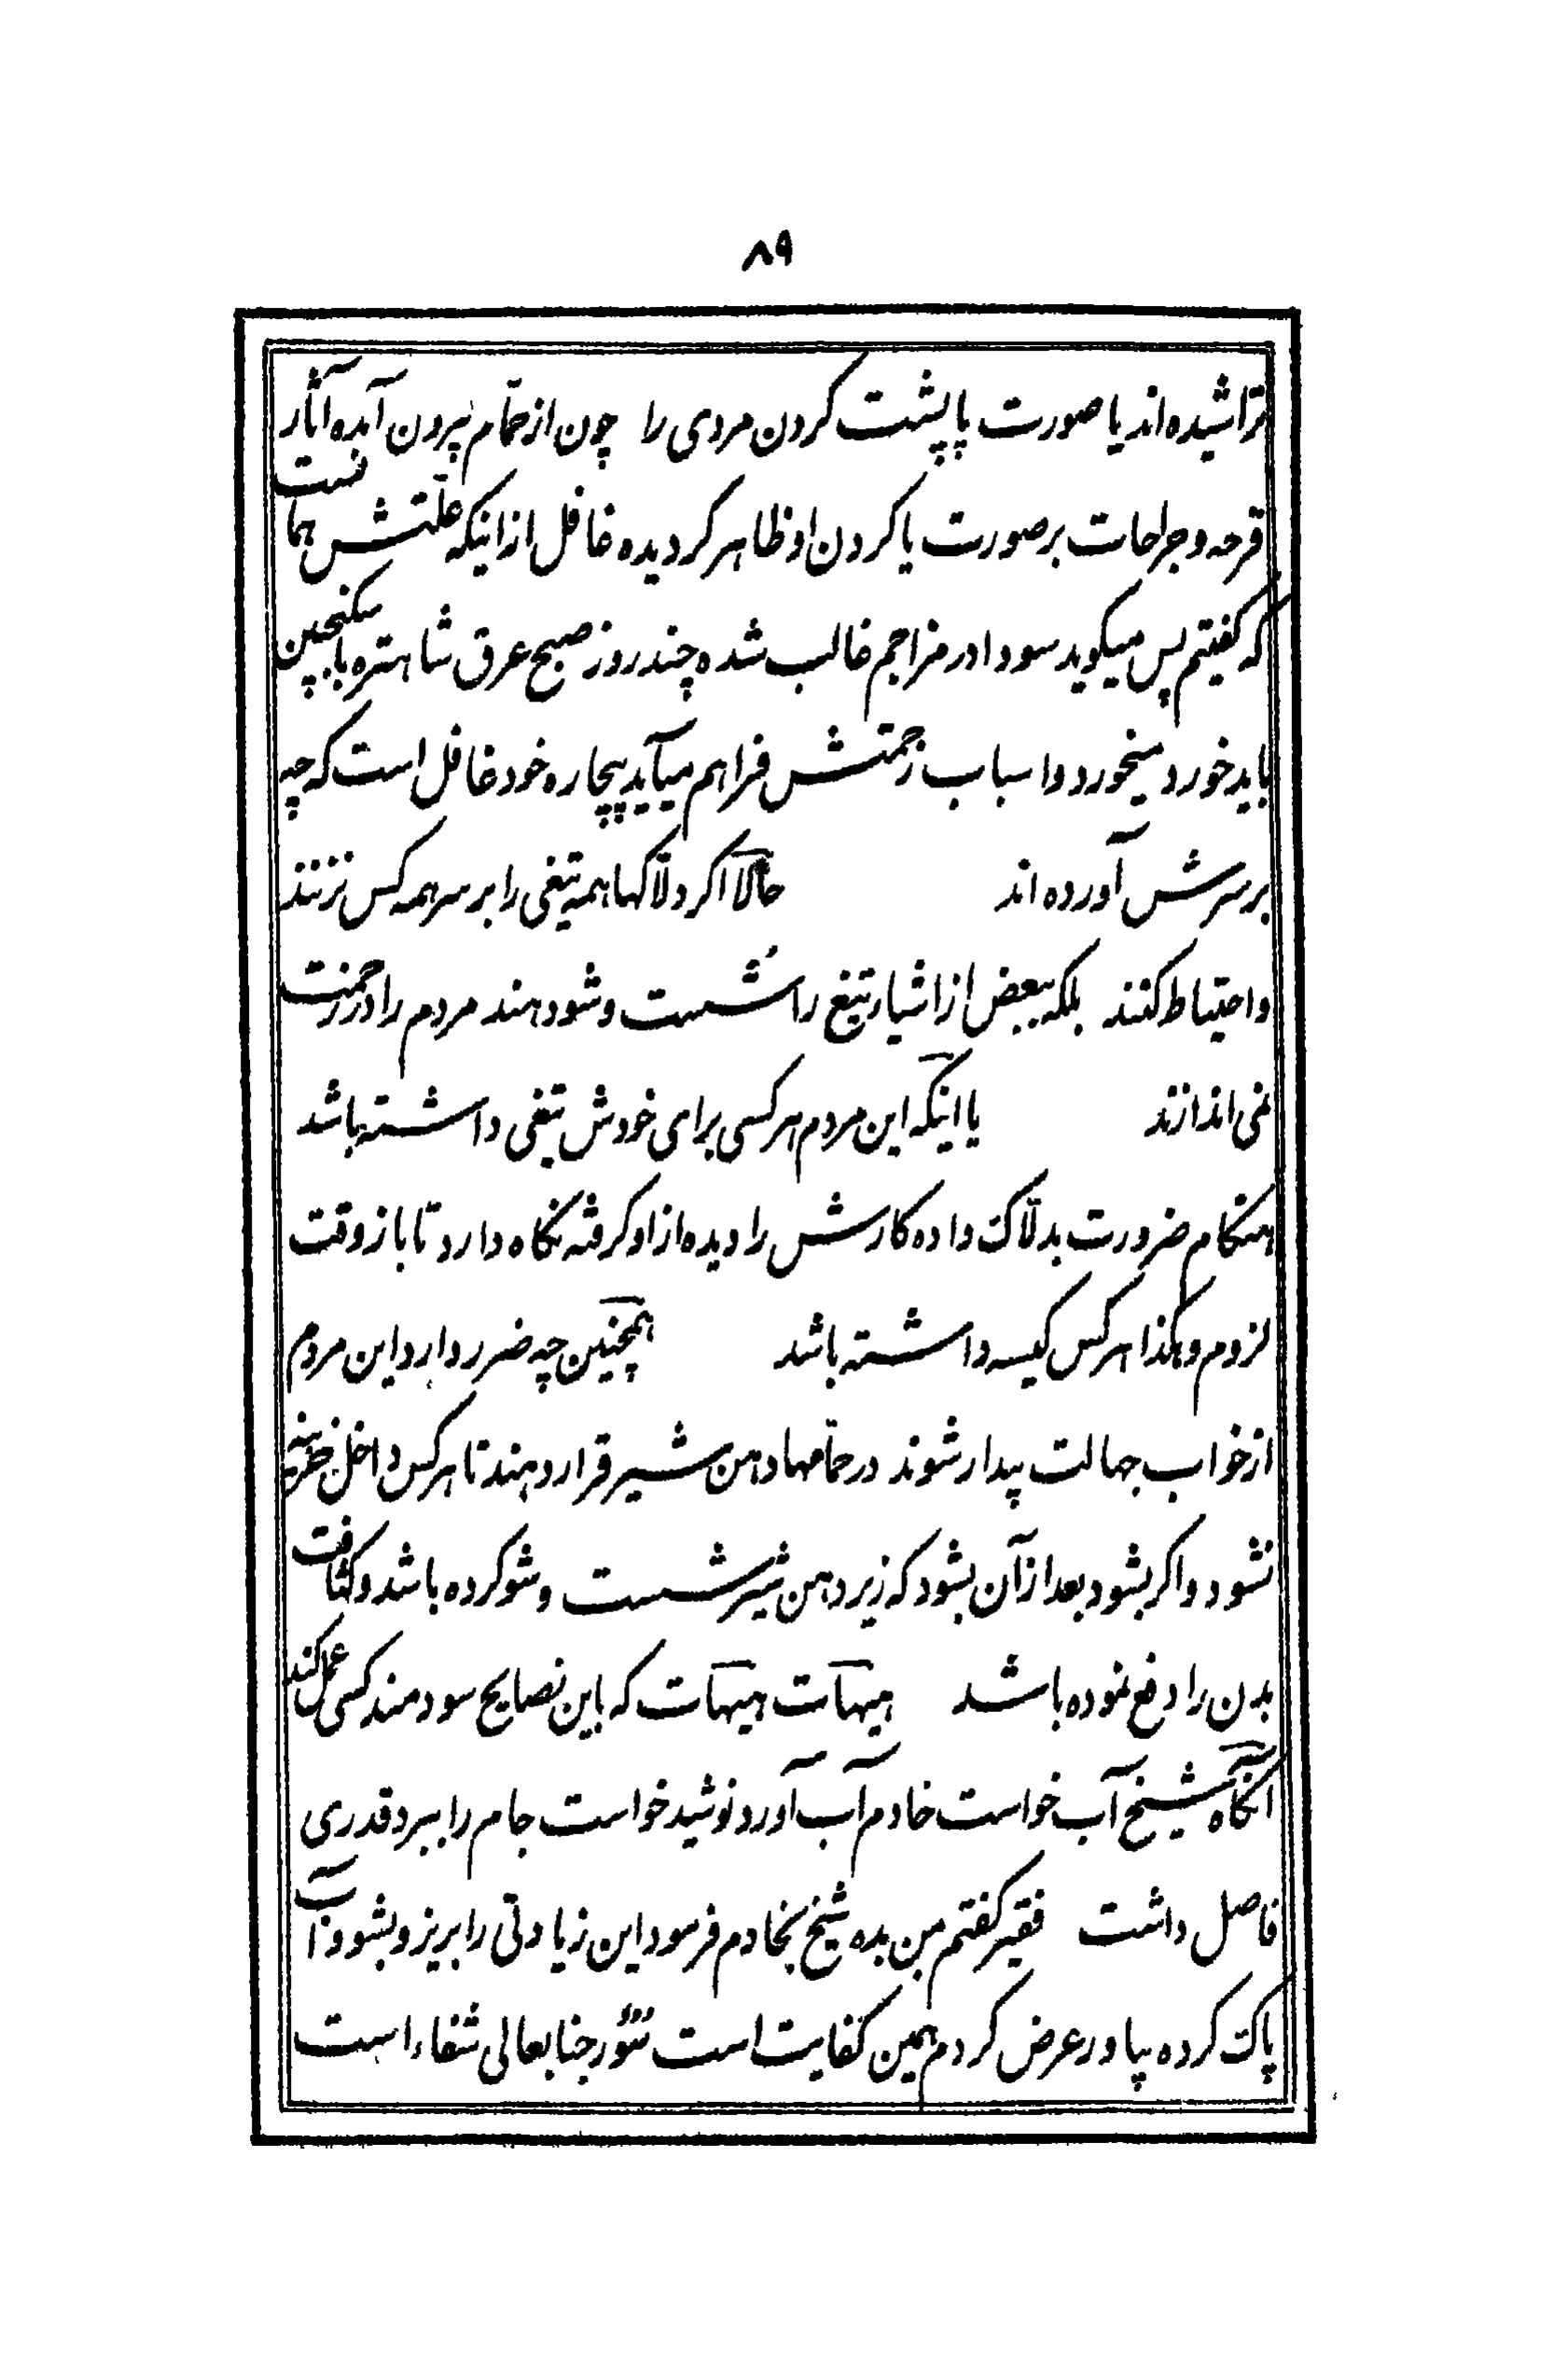 ۸۹
تراشیده‌اند یا صورت یا پشت کردن مردی را چون از حمّام بیرون آمده آثار
قرحه و جراحات بر صورت یا کردن او ظاهر کردیده غافل از اینکه علّتش همانست
که کفتیم پس میکوید سودا در مزاجم غالب شده چند روز صبح عرق شاهتره با سکنجبین
باید خورد میخورد و اسباب زحمتش فراهم میآید بیچاره خود غافل است که چه
بر سرش آورده‌اند حالا اکر دلّاکها همه تیغی را بر سر همه کس نزنند
و احتیاط کنند بلکه ببعض از اشیا تیغ را شست و شو دهند مردم را در زحمت
نمی‌اندازند یا اینکه این مردم هر کسی برای خودش تیغی داشته باشد
هنکام ضرورت بدلّاک داده کارش را دیده از او کرفته نکاه دارد تا باز وقت
لزوم و هکذا هر کس کیسه داشته باشد همچنین چه ضرر دارد این مردم
از خواب جهالت بیدار شوند در حمّامها دهن شیر قرار دهند تا هر کس داخل خزینه
نشود و اکر بشود بعد از آن بشود که زیر دهن شیر شست و شو کرده باشد و کثافت
بدن را دفع نموده باشد هیهات هیهات که باین نصایح سودمند کسی عمل کند
آنکاه شیخ آب خواست خادم آب آورد نوشید خواست جام را ببرد قدری
فاصل داشت فقیر کفتم بمن بده شیخ بخادم فرمود این زیادتی را بریز و بشو و آب
پاک کرده بیاور عرض کردم همین کفایت است سؤر جنابعالی شفاء است